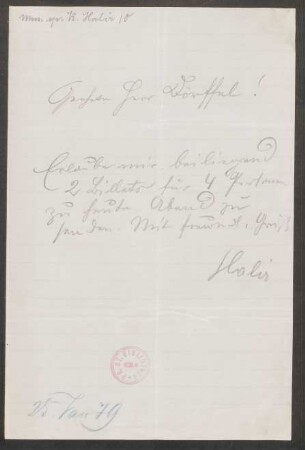 Mus. ep. K. Halir 10
Geehrter Herr Dörffel!
Erlaube mir beiliegend
2 Billete für 4 Personen
zu heute Abend zu
senden. Mit freundl. Gruß
Halir
25 Jan 79